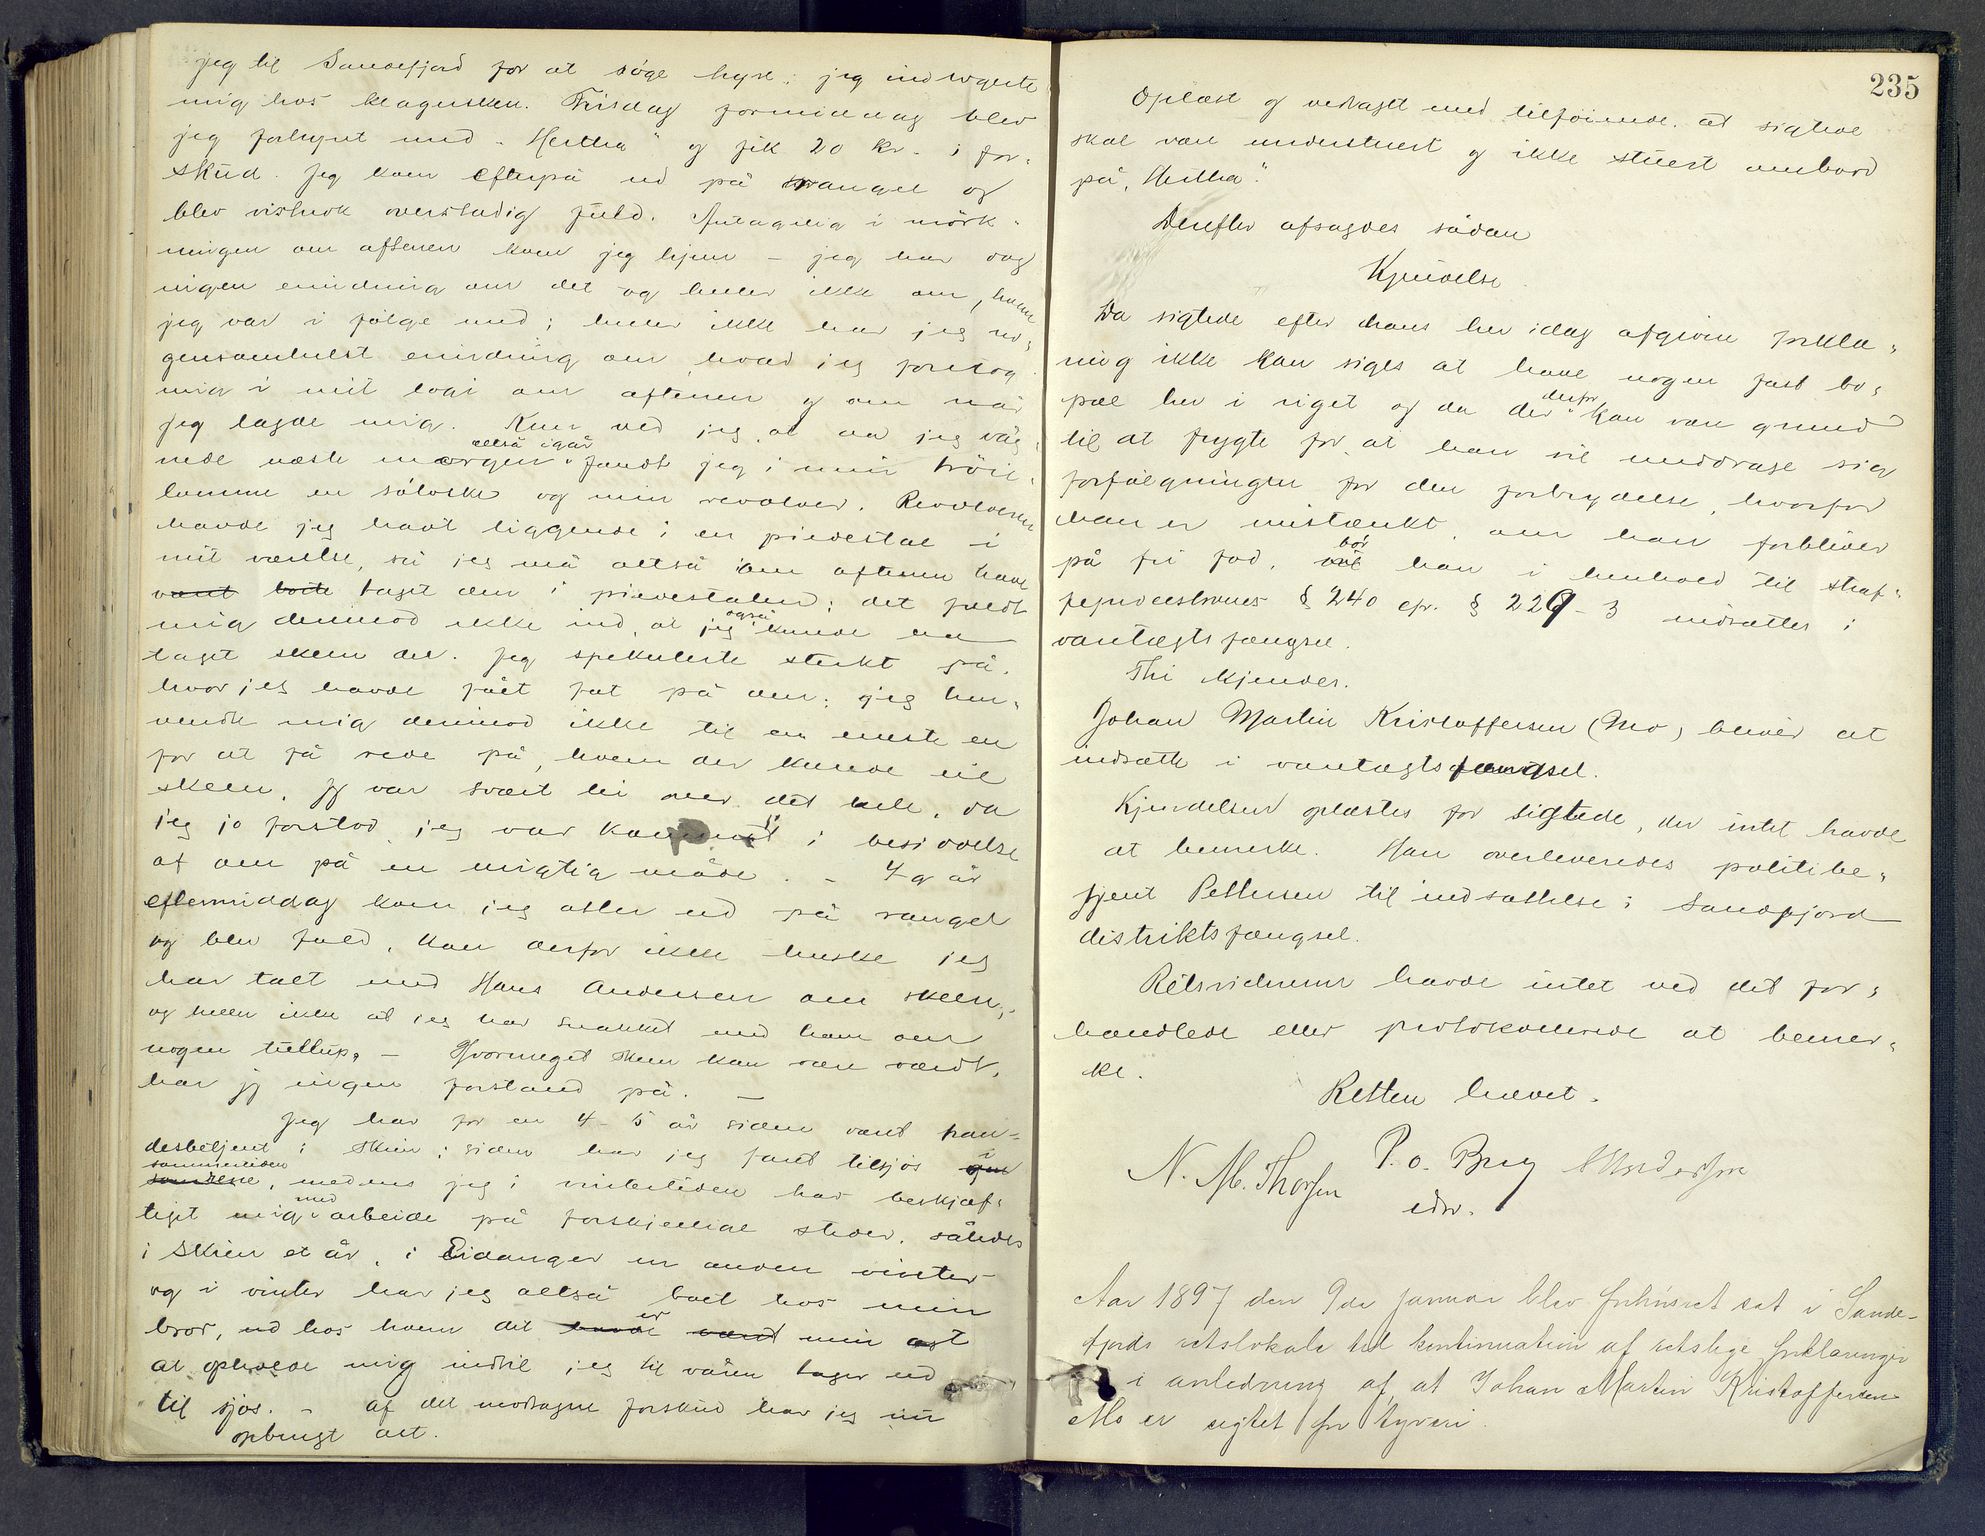 jeg til Sandefjord for at søge hyre; jeg indlogerte
mig hos klagersken. Tirsdag formiddag blev
jeg forhyret med „Hertha" og fik 20 kr. i for-
skud. Jeg kom efterpå ud på rangel og
blev vistnok overstadig fuld. Antagelig i mørk-
ningen om aftenen kom jeg hjem – jeg har dog
ingen erindring om det og heller ikke om, hvem
jeg var i følge med; heller ikke har jeg no-
gensomhelst erindring om, hvad jeg foretog
mig i mit logi om aftenen og om når
jeg lagde mig. Kun ved jeg, at da jeg våg-
nede næste morgen altså igår fandt jeg i min trøie-
lomme en sølvske og min revolver. Revolveren
havde jeg havt liggende i en piedestal i
mit værelse, så jeg må altså om aftenen have
været borte taget den i piedestalen; det faldt
mig derimod ikke ind, at jeg også kunde ha
taget skeen der. Jeg spekulerte sterkt på,
hvor jeg havde fået fat på den; jeg hen-
vendte mig derimod ikke til en eneste en
for at få rede på, hvem der kunde eie
skeen. Jeg var svært lei over det hele, da
jeg jo forstod, jeg var kommet i besiddelse
af den på en urigtig måde. – Igår
eftermiddag kom jeg atter ud på rangel
og blev fuld, kan derfor ikke huske jeg
har talt med Hans Andersen om skeen,
og heller ikke at jeg har snakket med ham om
nogen – Hvormeget skeen kan være værdt,
har jeg ingen forstand på. –
Jeg har for en 4-5 år siden været han-
desbetjent i Skien; siden har jeg faret tilsjøs i
sommertiden, medens jeg i vintertiden har beskjæf-
tiget mig med arbeide på forskjellige steder, således
i Skien et år, i Eidanger en anden vinter
og i vinter har jeg altså boet hos min
bror, ud hos hvem det er havde været min agt
at opholde mig indtil jeg til våren tager ud
til sjøs. – af det modtagne forskud har jeg nu
opbrugt alt.
235
Oplæst og vedtaget med tilføiende, at sigtede
skal være understuert og ikke stuert ombord
på „Hertha".
Derefter afsagdes sådan
Kjendelse
Da sigtede efter hans her idag afgivne forkla-
ring ikke kan siges at have nogen fast bo-
pæl her i riget og da der derfor kan være grund
til at frygte for, at han vil unddrage sig
forfølgningen for den forbrydelse, hvorfor
han er mistænkt, om han forbliver
på fri fod, vil bør han i henhold til straf-
feprocesslovens § 240 cfr. § 229-3 indsættes i
varetægtsfængsel.
Thi kjendes.
Johan Martin Kristoffersen (Mo) bliver at
indsætte i varetægtsfængsel.
Kjendelsen oplæstes for sigtede, der intet havde
at bemerke. Han overleveredes politibe-
tjent Pettersen til indsættelse i Sandefjord
distriktsfængsel.
Retsvidnerne havde intet ved det for-
handlede eller protokollerede at bemer-
ke.
Retten hævet.
N. M. Thorsen P. o. Bug
edsv.
Aar 1897 den 9de Januar blev forhørsret sat i Sande-
fjords retslokale til kontinuation af retslige forklaringer
i anledning af, at Johan Martin Kristoffersen
Mo er sigtet for tyveri.